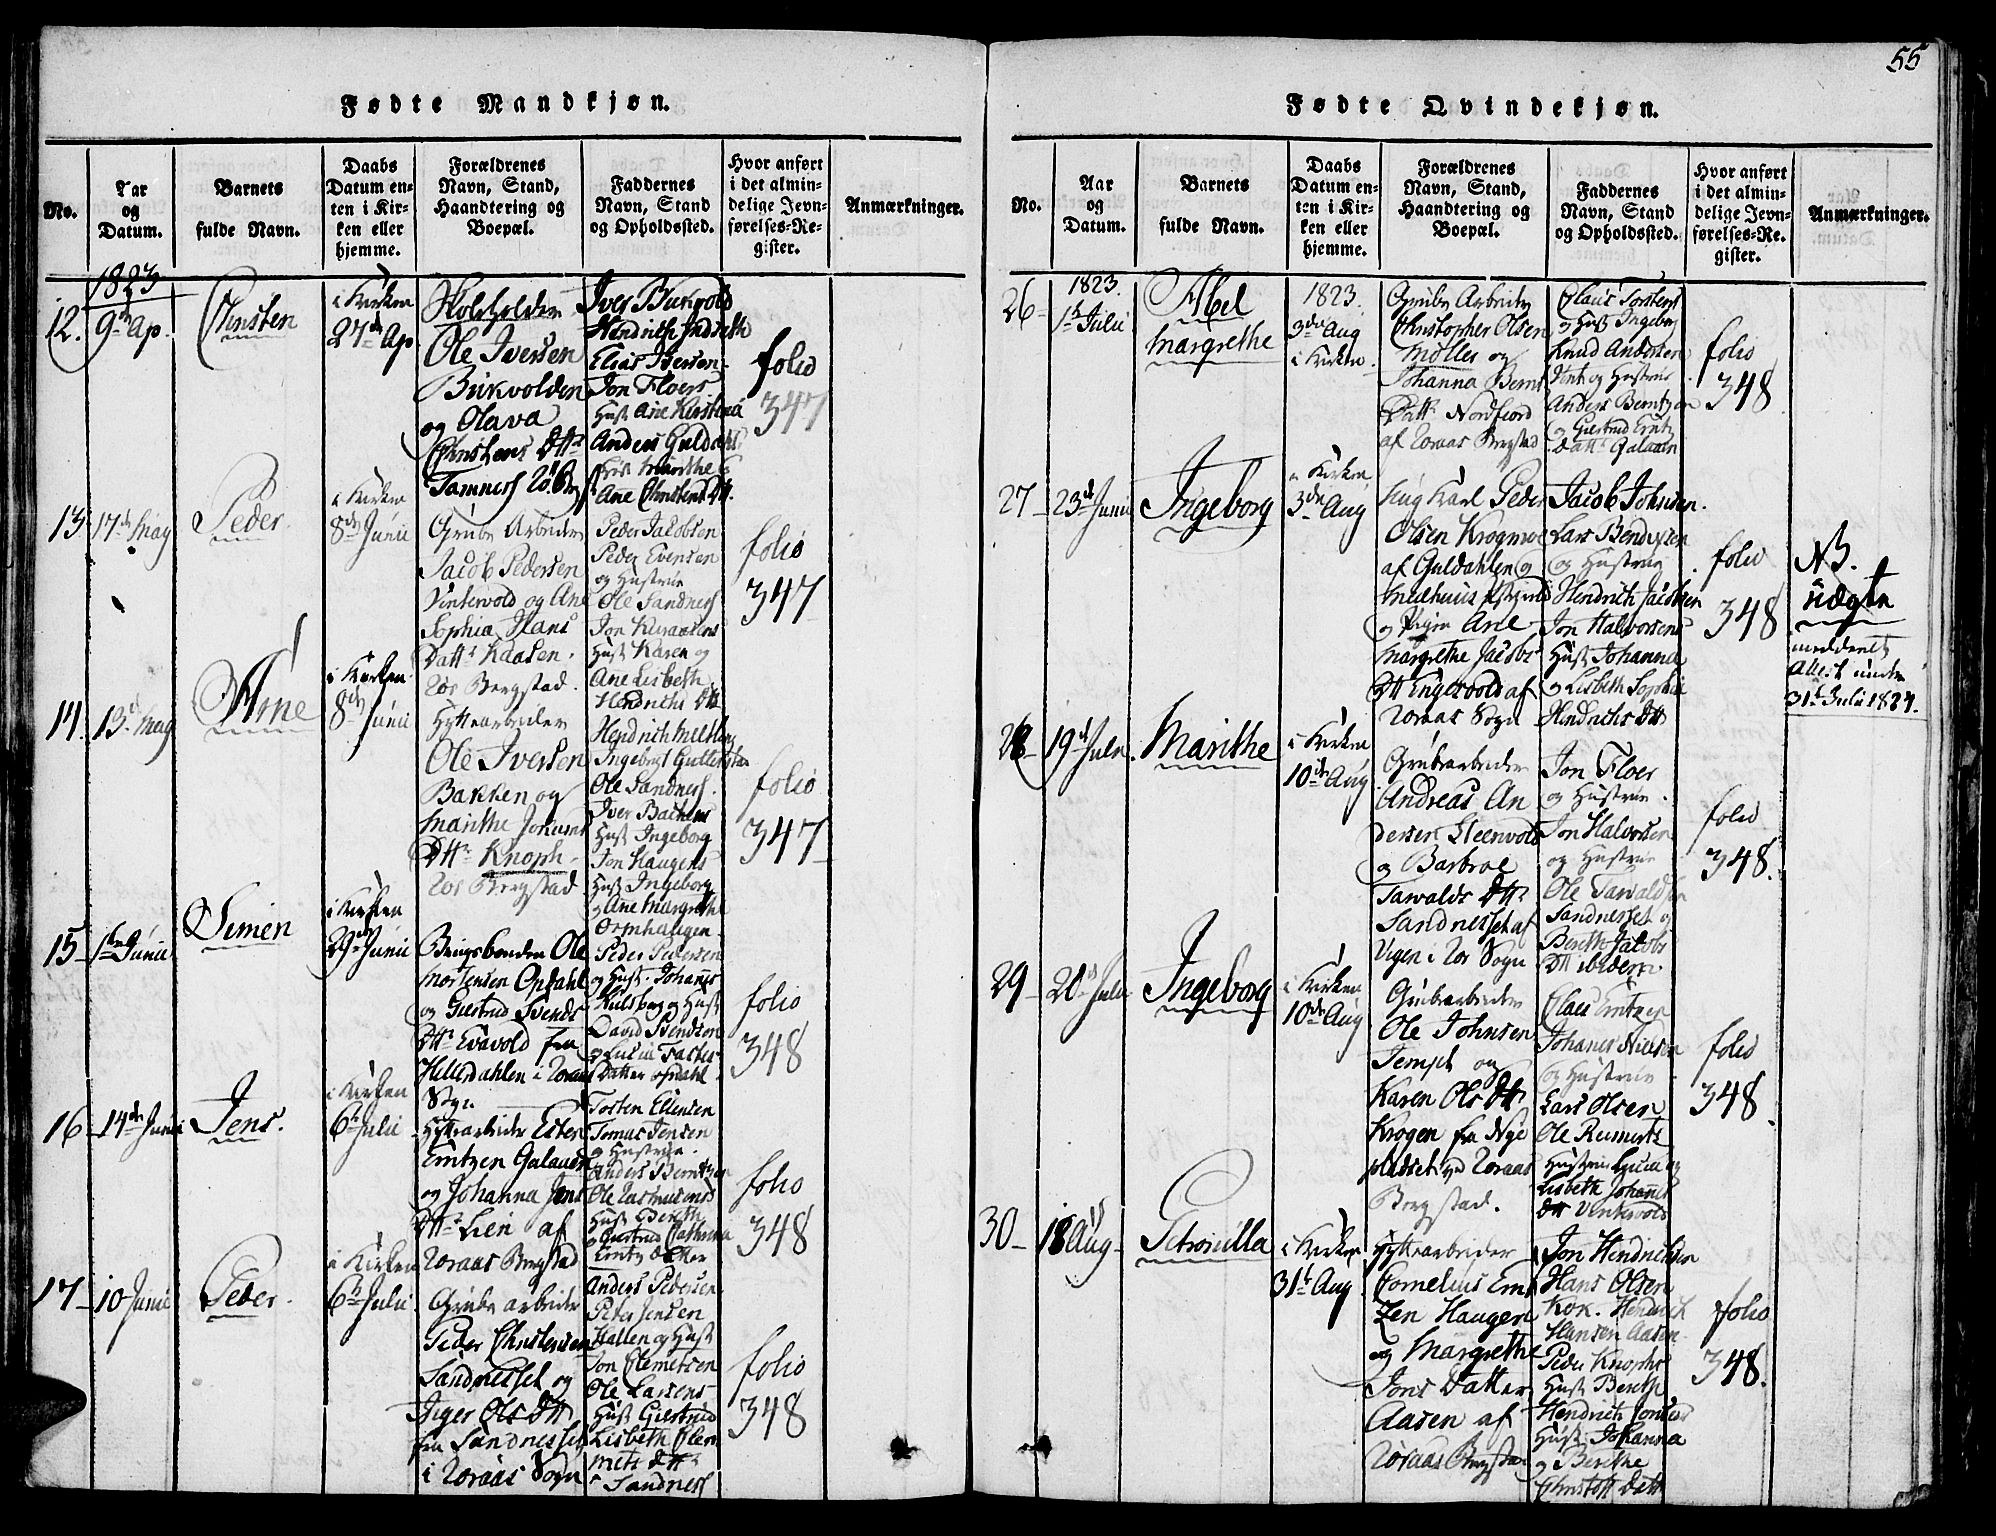 Fødte Mandkjøn.
No.
Aar og Datum.
Barnets fulde Navn.
Daabs Datum enten i Kirken eller hjemme.
Forældrenes Navn, Stand, Haandtering og Boepæl.
Faddernes Navn, Stand og Opholdssted.
Hvor anført i det almindelige Jevnførelses-Register.
Anmærkninger.
1823
12.
9de Ap.
Christen
i Kirken
27de Ap.
Ole Iversen
Birkvolden
og Olava
Christens Dttr
Iver Birkvold
Elias Iversen
Jon Floer
Hust Ane Kirstena
Anders Guldahl
Hust Marithe
Ane Christens Dtt.
folio
347
13
17de May
Peder.
i Kirken
8de Junii
Grube Arbeider
Jacob Pedersen
Vintervold og Ane
Sophia Hans
Datter Kaasen.
Rør Bergstad.
Peder Jacobsen
Peder Evensen
og Hustrue
Ole Sandness
Hust Karen og
Ane Lisbeth
Hendrichs Dtt
folio
347
14.
13de May
Arne
i Kirken
8de Junii
Hyttearbeider
Ole Iversen
Bakken og
Marithe Johans
Dttr Knoph
Rør Bergstad
Ole Sandness.
Iver Bachens
Hust Ingeborg
Jon Haugens
Hust Ingeborg
og Ane Margrethe
Ormhaugen.
folio
347
15
1ste Junii
Simen
i Kirken
29de Junii
Brugsbonden Ole
Mortensen Opdahl
og Giertrud Svends
Dttr Evavold fra
Hitterdahlen i Roraas
Sogn
Peder Pedersen
og Hust. Johannes
og Hust
David Svendsen
Datter Opdahl.
folio
348
16
14de Junii
Jens.
i Kirken
6te Julii
Hyttearbeider Ester
Erntzen Galaaen
og Johanna Jens
Dttr Lien af
Roraas Bergstad
Tosten Eliensen
Tomas Jensen
og Hustrue.
Anders Berntzen
Ole Rasmusens
Hust Bereth
og Giertrud Cathrina
Erntz Datter
folio
348
17
10 Junii
Peder.
i Kirken
6te Julii
Grube arbeider
Peder Christensen
Sandnesset og
Inger Ols Dtt
fra Sandnesset
i Roraas Sogn
Anders Pedersen
Peter Jensen
Hallen og Hust
Jon Clemetsen
Ole Larsens
Hust Giertrud
Lisbeth Clemets Dtt
Sandness
folio
348
55
Fødte Qvindekjøn.
No.
Aar og Datum.
Barnets fulde Navn.
Daabs Datum enten i Kirken eller hjemme.
Forældrenes Navn, Stand, Haandtering og Boepæl.
Faddernes Navn, Stand og Opholdssted.
Hvor anført i det almindelige Jevnførelses-Register.
Anmærkninger.
26
1823.
1te Julii
Abel
Margrethe
1823.
3de Aug
i Kirken.
Grube Arbeider
Christopher Olsen
Møller og
Johanna Bernt
Datter Nordfiord
af Roraas Bergstad
Claus Torstens
og Hust Ingeborg
Knud Andersen
og Hustrue
Anders Berntzen
og Giertrud Erntz
Datt Galaaen
folio
348
27
23de Junii
Ingeborg
i Kirken
3de Aug
Ung Karl Peder
Olsen Krogmoe
af Guldahlen og
og Pigen Ane
Margrethe Jacobs
Dtt Engesvold af
Roraas Sogn
Jacob Johnsen.
Lars Bendixsen
og Hustrue
Hendrich Jacobsen
Jon Halvorsens
Hust Johanna
og Lisbeth Sophia
Hindrichs Dtt
folio
348
NB.
Uægte
meddeelt
Attest under
31te Julii 1827.
28
19de Julii
Marithe
i Kirken
10de Aug
Grubearbeider
Andreas Andersen Steenvold
og Barbroe
Tarvalds Dttr
Sandnesset af
Vigen i Ror Sogn
Jon Floer
og Hustrue.
Jon Halvorsen
og Hustrue
Ole Tarvaldsen
Sandnesset og
Bereth Jacobs
Dtt ibidem.
folio
348.
29
20de Julii
Ingeborg
i Kirken
10de Aug
Grubearbeider
Ole Johnsen
Tempel og
Karen Ols Dtt
Krogen fra Nye
pladset ved Roraas
Bergstad.
Claus Erntzen
Johannes Nielsen
og Hustrue
Lars Olsen
Ole Rumerts
Hustrue Lucia og
Lisbeth Johannes
Dtt Vintervold
folio
348.
30
18 Aug
Petronilla
i Kirken
31te Aug
Hyttearbeider
Cornelius Erntzen Haugen
og Margrethe
Jons Datter
Aasen af
Roraas Bergstad
Jon Hendrichsen
Hans Olsen
Kok. Hendrich
Hansen Aasen.
Peder Knophs
Hust Bereth,
Hendrich Jonsens
Hust Johanna
og Berithe
Christoff Datt
folio
348.